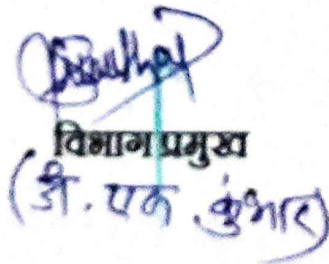 विभाग प्रमुख
(जे. एन. कुंभार)